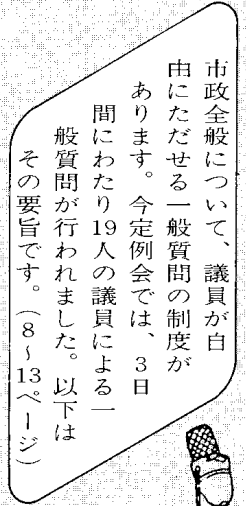 市政全般について、議員が自
由にただせる一般質問の制度が
あります。今定例会では、3日
間にわたり19人の議員による一
般質問が行われました。以下は
その要旨です。(8〜13ページ)